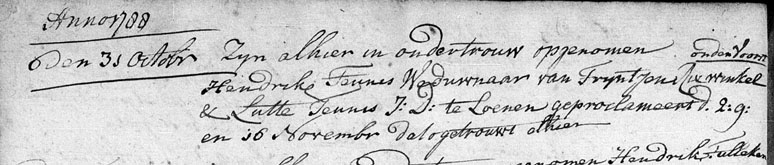 Anno 1788
Den 31 Octobr Zyn alhier in ondertrouw opgenomen onder Voorn
Hendrik Teunis Weduwnaar van Tryntjens winkel
& Lutte Teunis J: D: te Loenen geproclameert d. 2: 9:
en 16 Novembr dato getrouwt alhier
genomen Hendrik